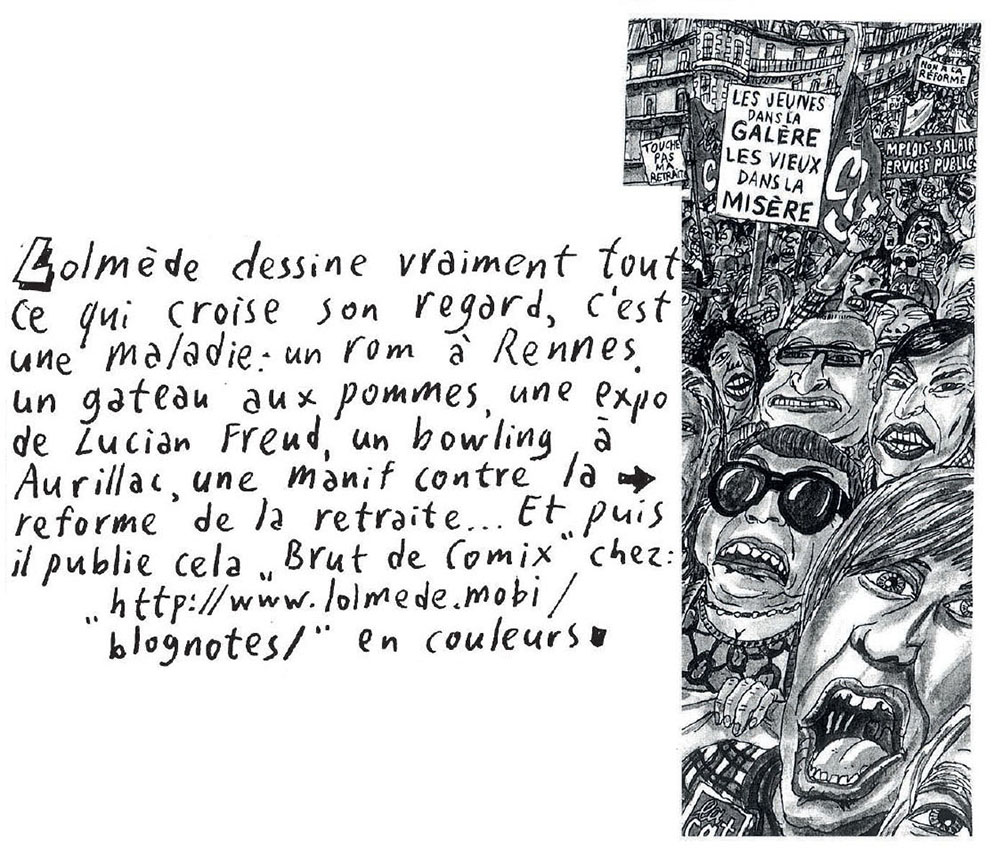 Lolmède dessine vraiment tout
ce qui croise son regard, c'est
une maladie: un rom à Rennes,
un gateau aux pommes, une expo
de Lucian Freud, un bowling à
Aurillac, une manif contre la ➡
reforme de la retraite... Et puis
il publie cela „Brut de Comix" chez:
„http://www.lolmede.mobi/
blognotes/" en couleurs▪
NON A LA
RÉFORME
LES JEUNES
DANS LA
GALÈRE
LES VIEUX
DANS LA
MISÈRE
TOUCHE
PAS
MA
RETRAIT
MPLOIS-SALAIR
ERVICES PUBLIC